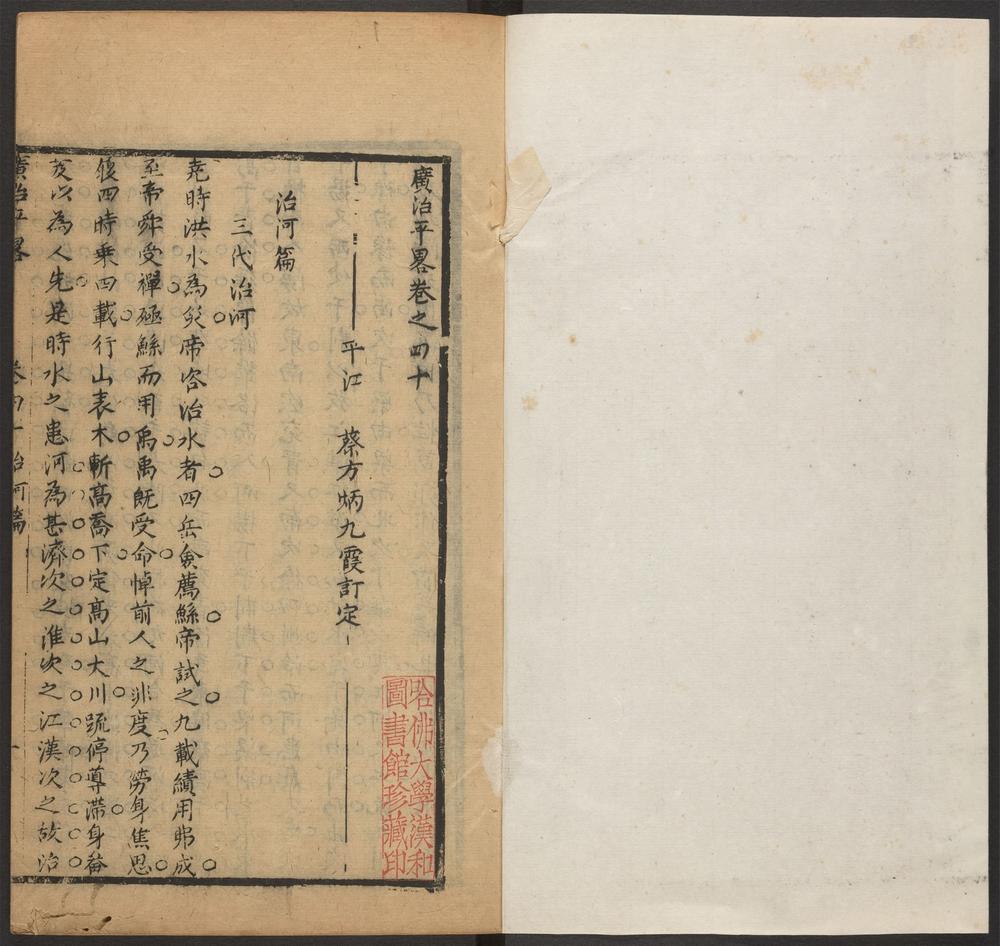 廣治平畧卷之四十
平江 蔡方炳九霞訂定
治河篇
三代治河
堯時洪水為災帝咨治水者四岳僉薦鯀帝試之九載績用弗成
至帝舜受禪殛鯀而用禹禹既受命悼前人之非度乃勞身焦思
復四時乗四載行山表木斬高喬下定高山大川䟽停導滯身
以為人先是時水之患河為甚濟次之淮次之江漢次之故治
廣治平畧 卷四十治河篇 一
哈佛大學漢和
圖書館珍藏印